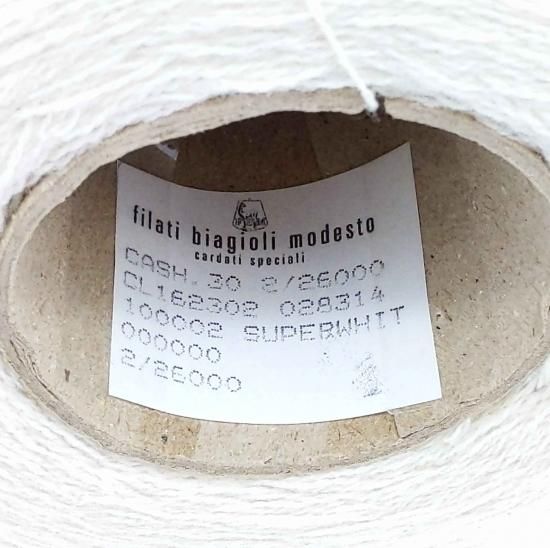 filati biagioli modesto
cardati speciali
CASH.30 2/26000
CL162302 028314
100002 SUPERWHIT
000000
2/26000